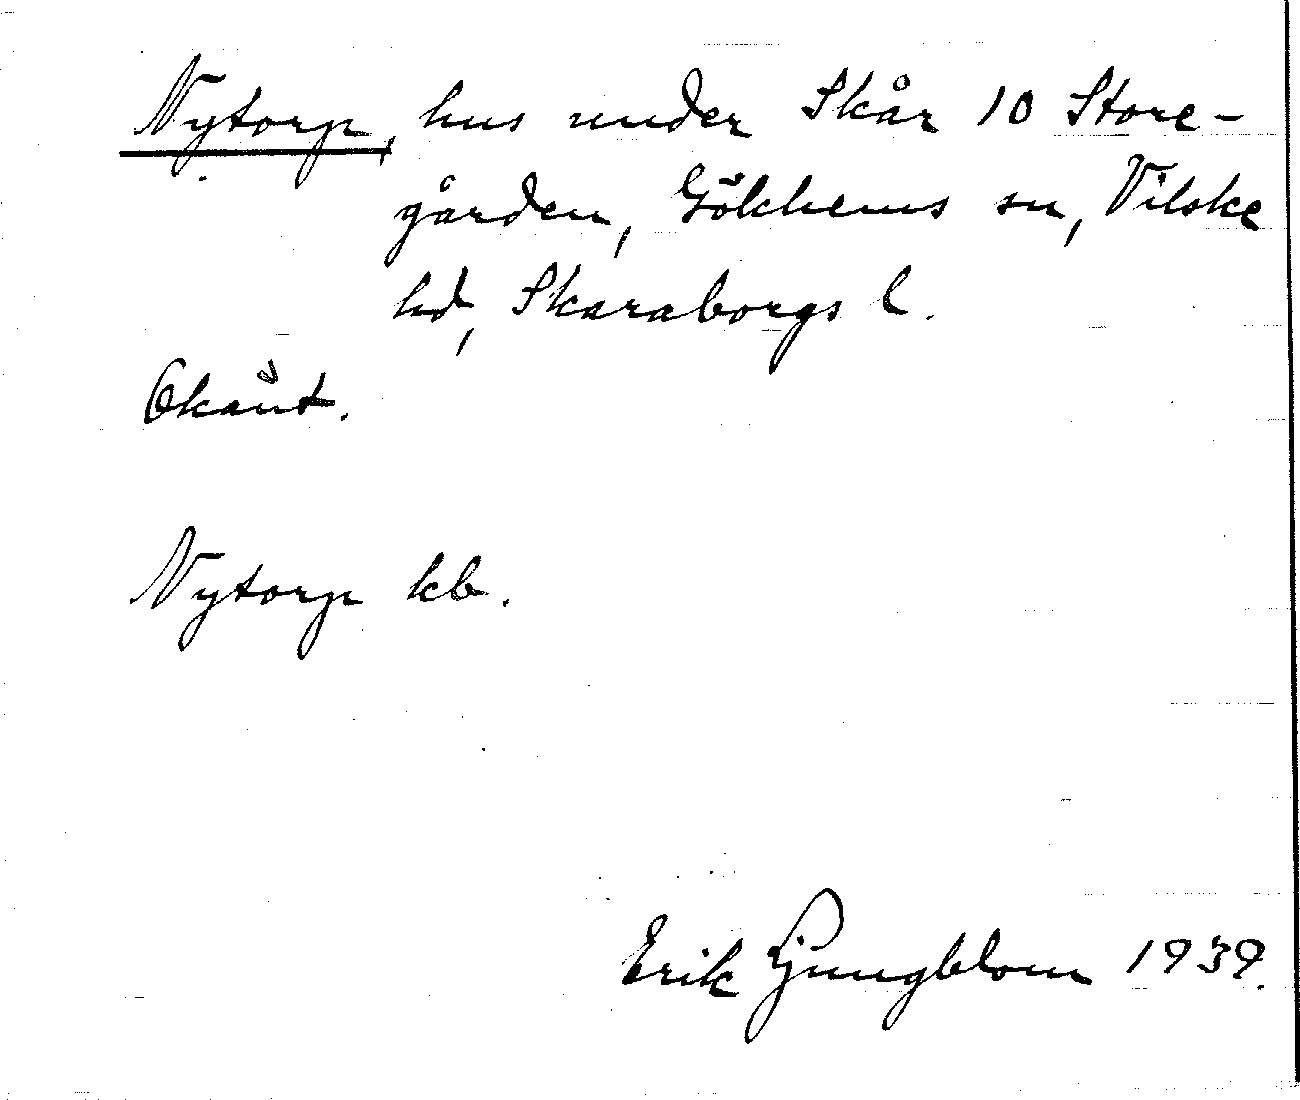 Nytorp, hus under Skår 10 Store-
gården, Gökhems sn, Vilske
hd, Skaraborgs l.
Okänt.
Nytorp kb.
Erik Ljungblom 1939.